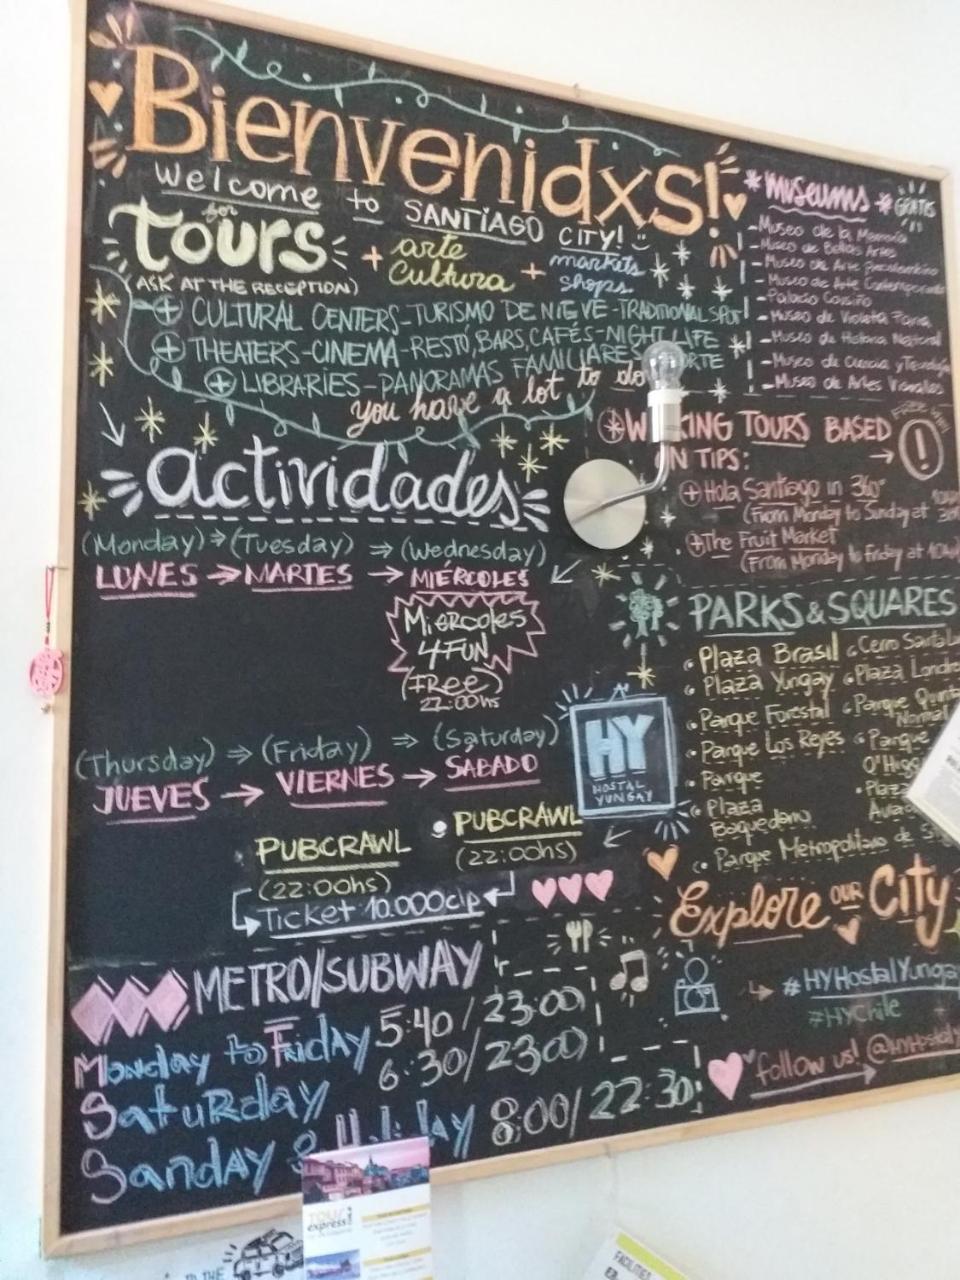 Bienvenidxs!
Welcome to SANTIAGO CITY!
for
tours + arte Cultura + markets shops
(ASK AT THE RECEPTION)
CULTURAL CENTERS-TURISMO DE NIEVE-TRADITIONAL SPOT
THEATERS-CINEMA-RESTÓ,BARS,CAFÉS-NIGHT LIFE
LIBRARIES-PANORAMAS FAMILIARES
you have a lot to do
*museums* GRATIS
-Museo de la Memoria
-Museo de Bellas Artes
-Museo de Arte precolombino
-Museo de Arte Contemporaneo
-Palacio Cousiño
-Museo de Violeta Parra
-Museo de Historia
-Museo de Ciencia y Tecnología
-Museo de Artes Visuales
TOURS BASED
TIPS:
Hola Santiago in 360°
(From Monday to Sunday at
The Fruit Market
(From Monday to Friday at
actividades
(Monday) (Tuesday) (Wednesday)
LUNES MARTES MIÉRCOLES
Miercoles
4FUN
(FREE)
22:00hs
(Thursday) (Friday) (Saturday)
JUEVES VIERNES SÁBADO
PUBCRAWL PUBCRAWL
(22:00hs) (22:00hs)
Ticket 10.000clp
HY
HOSTAL
YUNGAY
PARKS & SQUARES
Plaza Brasil
Plaza Yungay
Parque Forestal
Parque Los Reyes
Parque
Plaza
Baquedano
Parque Metropolitano de
Cerro Santa
Plaza
Parque
Normal
Parque
Explore our City
#HYHostalYungay
#HYChile
follow us!
METRO/SUBWAY
Monday to Friday 5:40/23:00
Saturday 6:30/23:00
Sunday & 8:00/22:30
TOUR
express
TO THE
FACILITIES